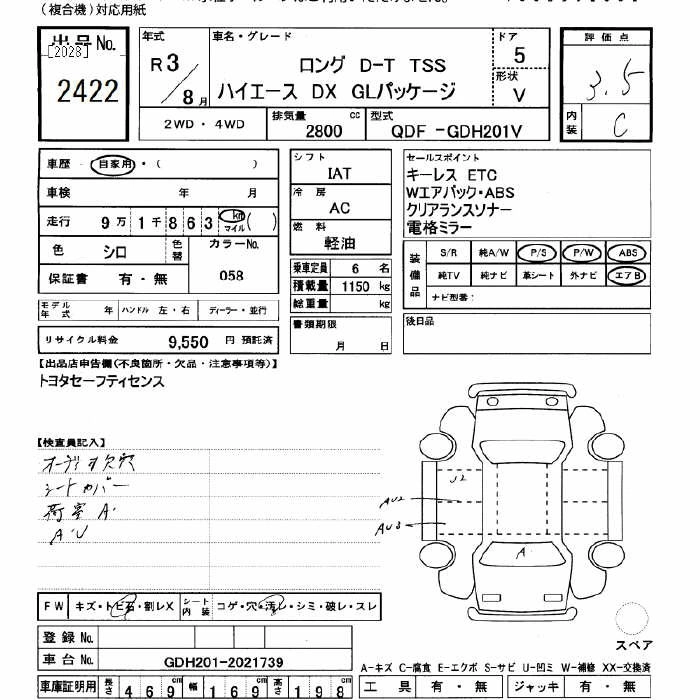 (複合機)対応用紙
出品No. 年式 車名・グレード ドア 評価点
[2023] R3 ロング D-T TSS 5 3.5
2422 8月 ハイエース DX GLパッケージ 形状 V 内装 C
2WD・4WD 排気量 2800 cc 型式 QDF -GDH201V
車歴 自家用・( )
車検 年 月
走行 9万1千863 km マイル( )
色 シロ 色替 カラーNo.
保証書 有・無 058
モデル年式 年 ハンドル 左・右 ディーラー・並行
リサイクル料金 9,550 円 預託済
シフト IAT
冷房 AC
燃料 軽油
乗車定員 6 名
積載量 1150 kg
総重量 kg
書類期限
月 日
セールスポイント
キーレス ETC
Wエアバック・ABS
クリアランスソナー
電格ミラー
装備品 S/R 純A/W P/S P/W ABS
純TV 純ナビ 革シート 外ナビ エアB
ナビ型番:
後日品
【出品店申告欄(不良箇所・欠品・注意事項等)】
トヨタセーフティセンス
【検査員記入】
オーディオ欠穴
シートカバー
荷室 A'
A'U
U2
AU2
AU3
A'
FW キズ・トビ石・割レX シート内装 コゲ・穴・汚レ・シミ・破レ・スレ
登録 No.
車台 No. GDH201-2021739
スペア
A-キズ C-腐食 E-エクボ S-サビ U-凹ミ W-補修 XX-交換済
車庫証明用 長さ 469cm 幅 169cm 高さ 198cm 工具 有・無 ジャッキ 有・無